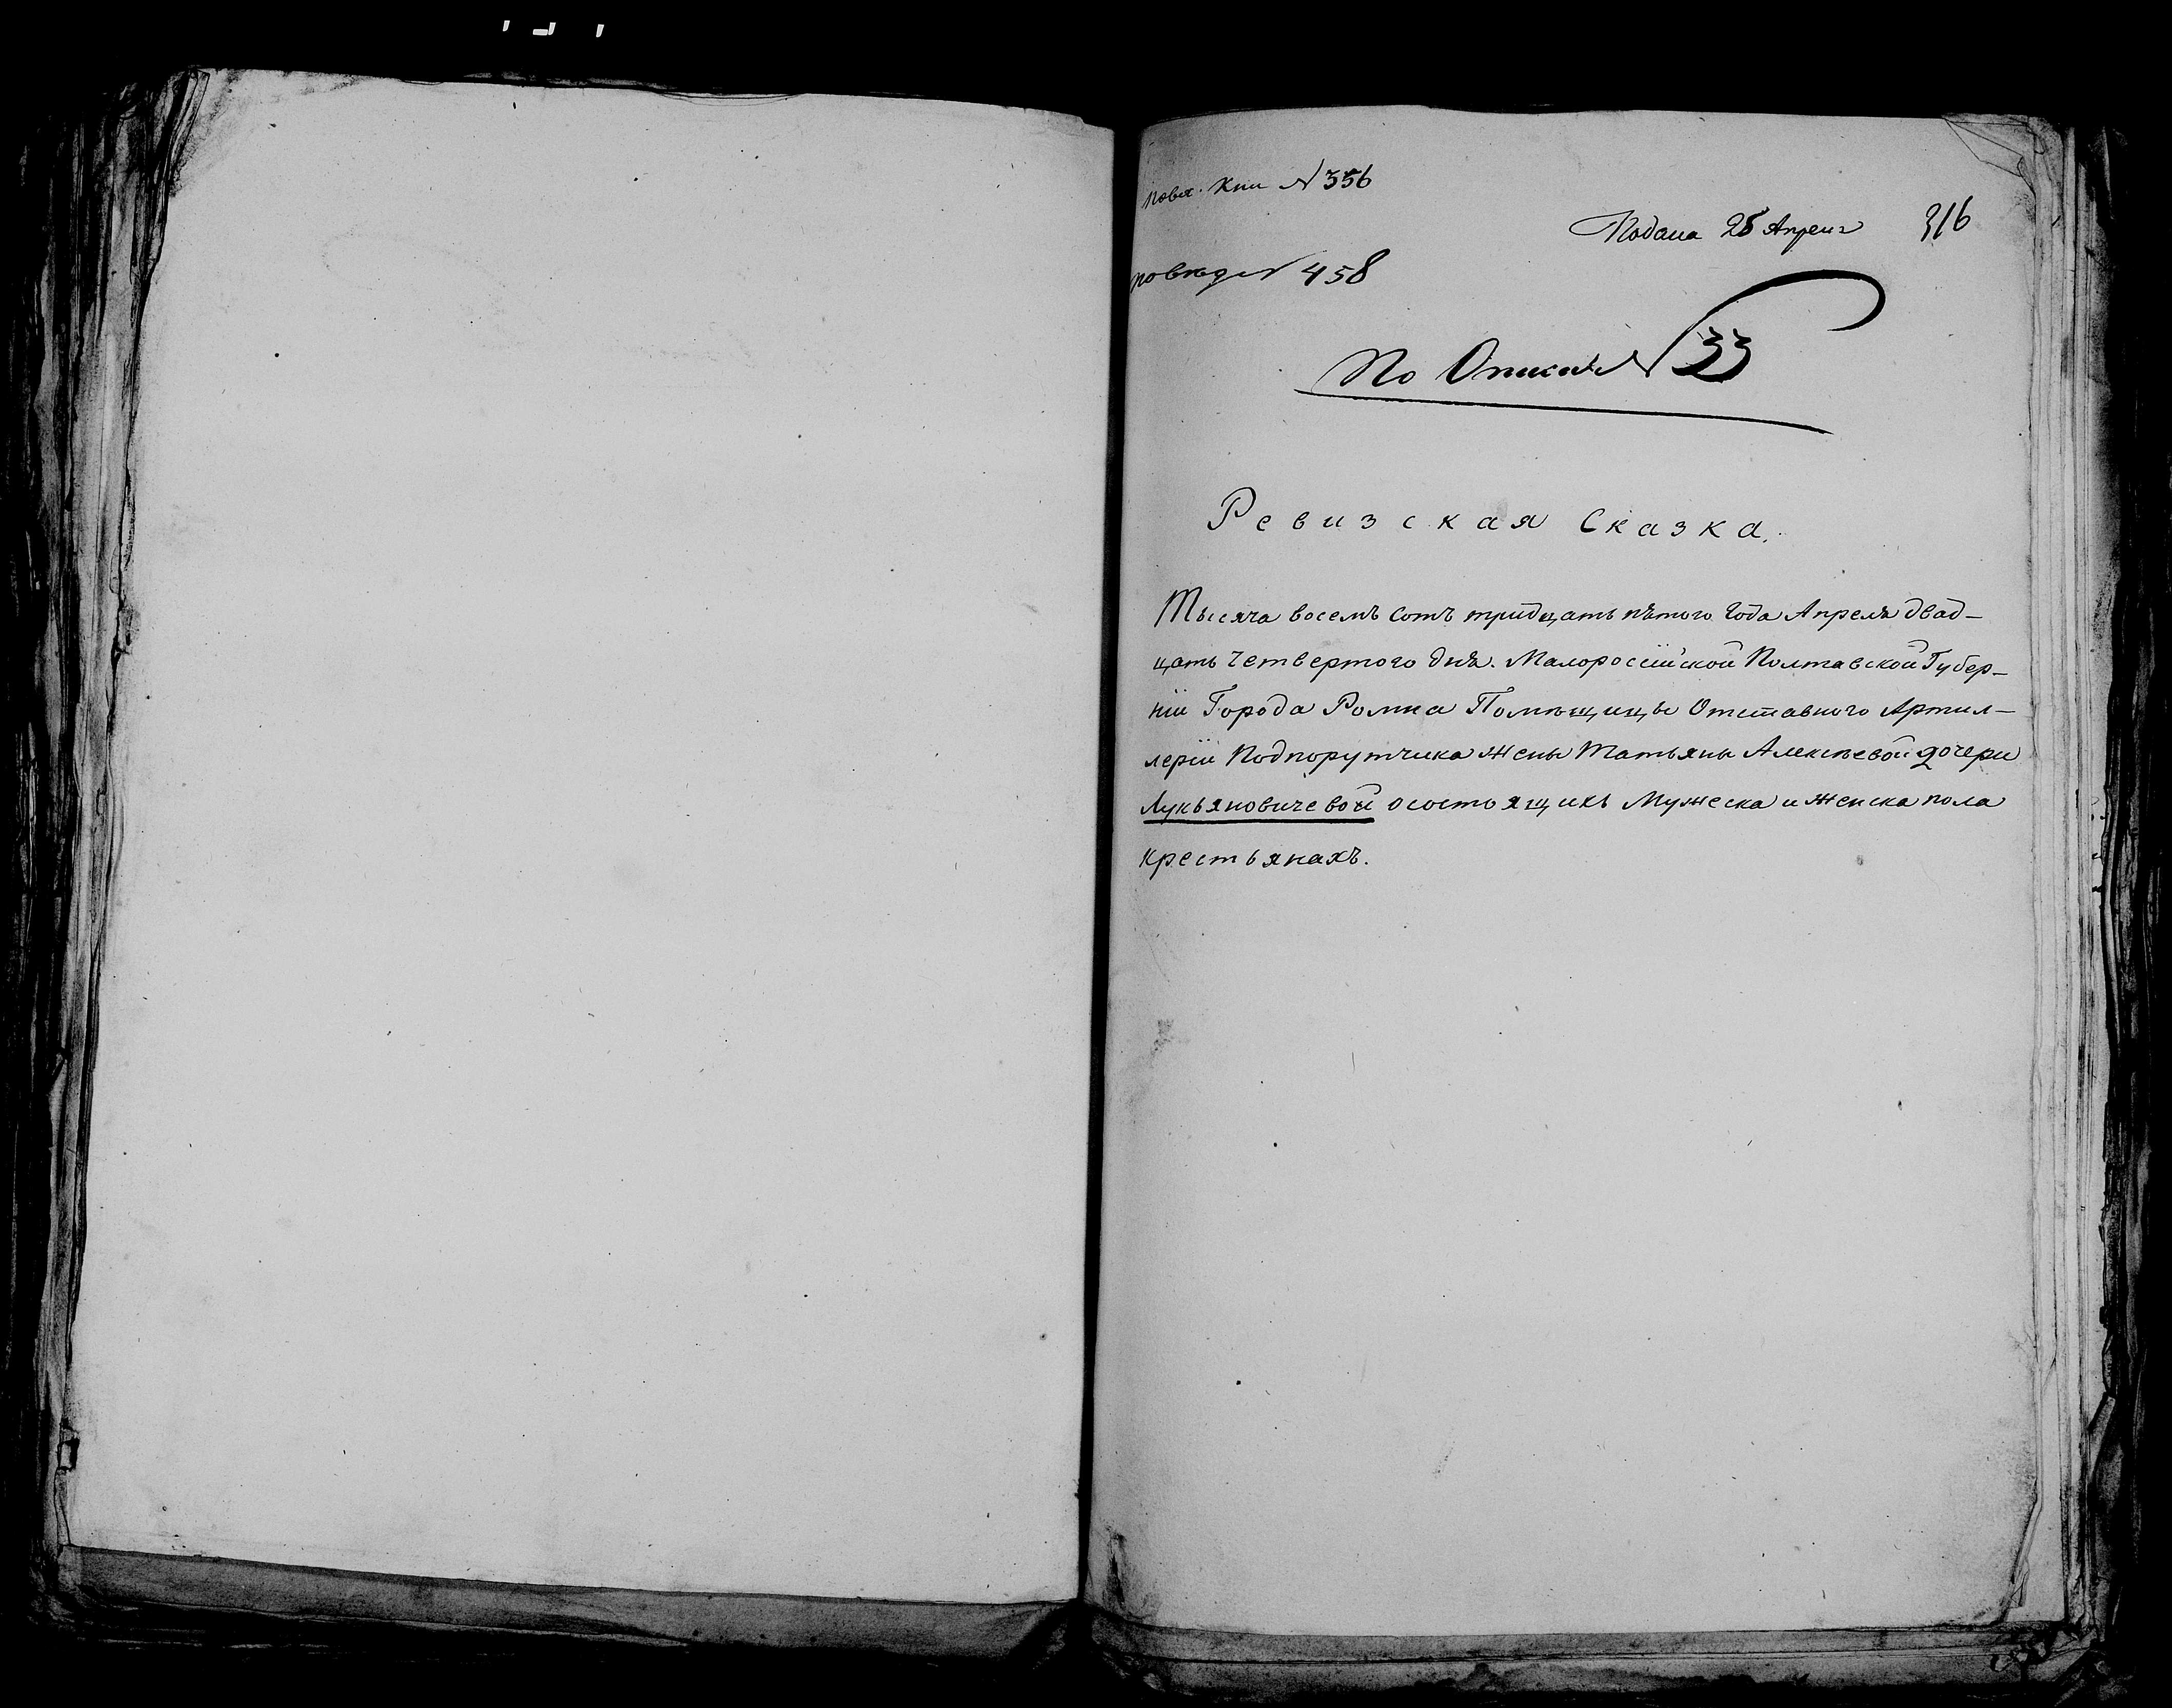 Кни № 356
Подана 25 Апреля 316
повед № 458
По Описи № 33
Ревизская Сказка.
Тысяча восемъ сотъ тридцать пятого Года Апреля двад-
цать четвертого дня. Малоросійской Полтавской Губер-
ніи Города Ромна Помѣщицы Отставного Артил-
леріи Подпорутчика жены Татьяны Алексѣевой дочери
Лукьяновичевой осостоящихъ Мужеска и женска пола
крестьянахъ.